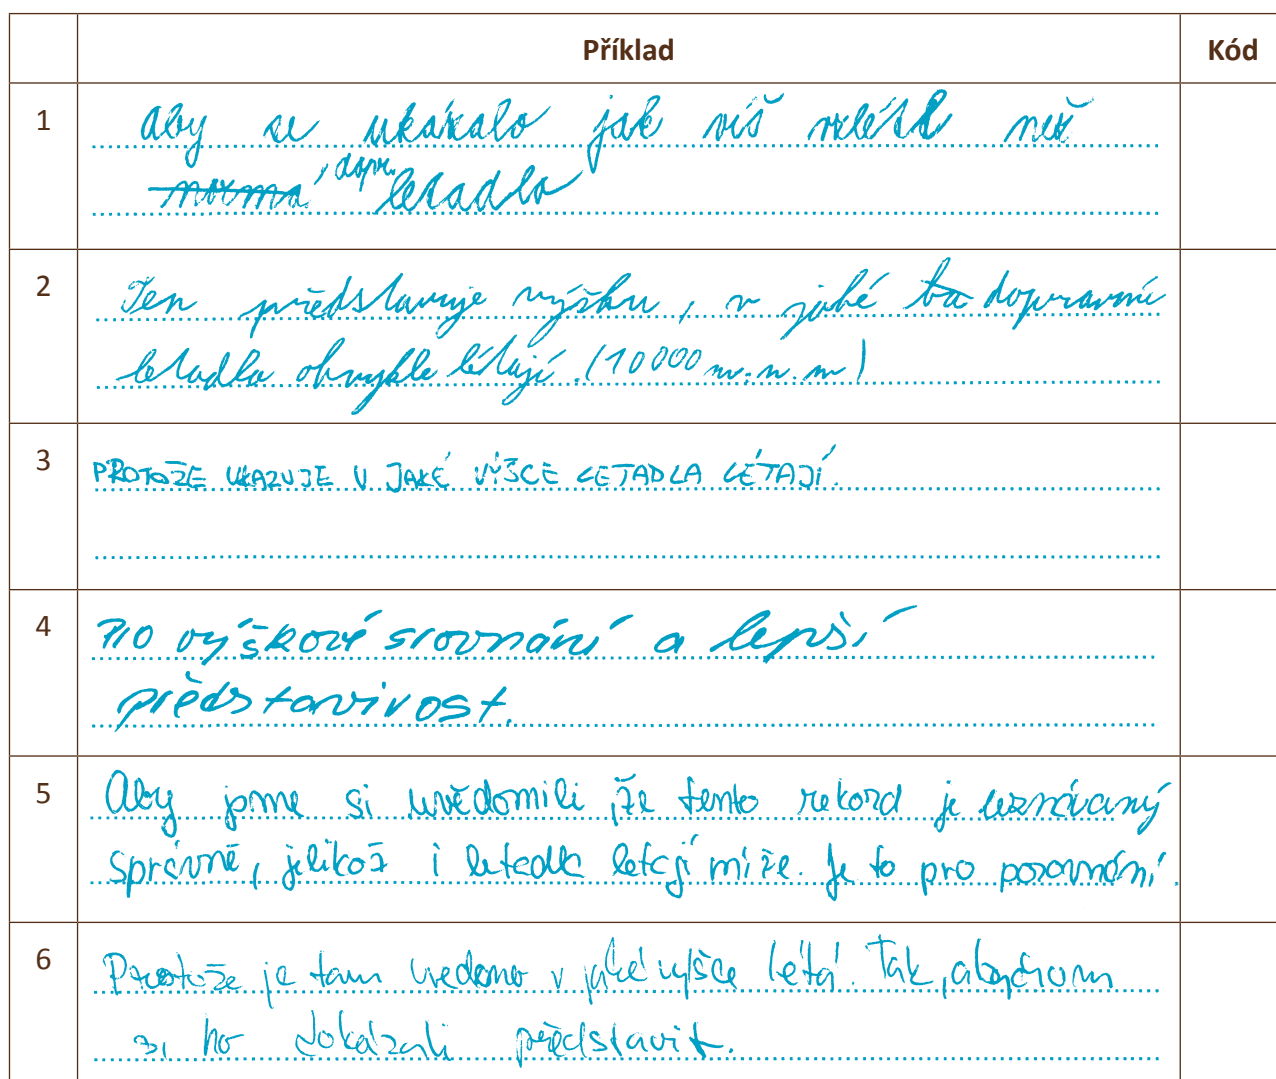 Příklad Kód
1 Aby se ukázalo jak víš vzlétl než
norma, dopr. letadla
2 Ten představuje výšku, v jaké ta dopravní
letadla obvykle létají. (10 000 m.n.m)
3 PROTOŽE UKAZUJE V JAKÉ VÝŠCE LETADLA LÉTAJÍ.
4 Pro výškové srovnání a lepší
představivost.
5 Aby jsme si uvědomili, že tento rekord je uznávaný
správně, jelikož i letadla letají míže. Je to pro porovnání.
6 Protože je tam uvedeno v jaké výšce létá. Tak, abychom
si ho dokázali představit.